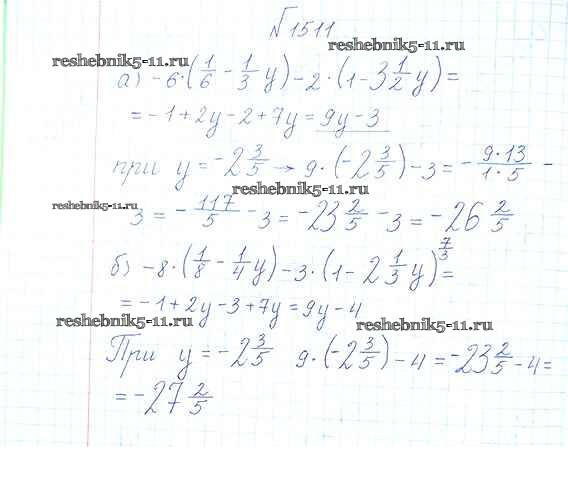 №1511
reshebnik5-11.ru reshebnik5-11.ru
а) -6·(1/6 - 1/3 y) - 2·(1 - 3 1/2 y) =
= -1 + 2y - 2 + 7y = 9y - 3
при y = -2 3/5 → 9·(-2 3/5) - 3 = - 9·13/1·5 -
reshebnik5-11.ru
reshebnik5-11.ru
3 = - 117/5 - 3 = -23 2/5 - 3 = -26 2/5
б) -8·(1/8 - 1/4 y) - 3·(1 - 2 1/3 y) 7/3 =
= -1 + 2y - 3 + 7y = 9y - 4
reshebnik5-11.ru reshebnik5-11.ru
При y = -2 3/5 9·(-2 3/5) - 4 = -23 2/5 - 4 =
= -27 2/5